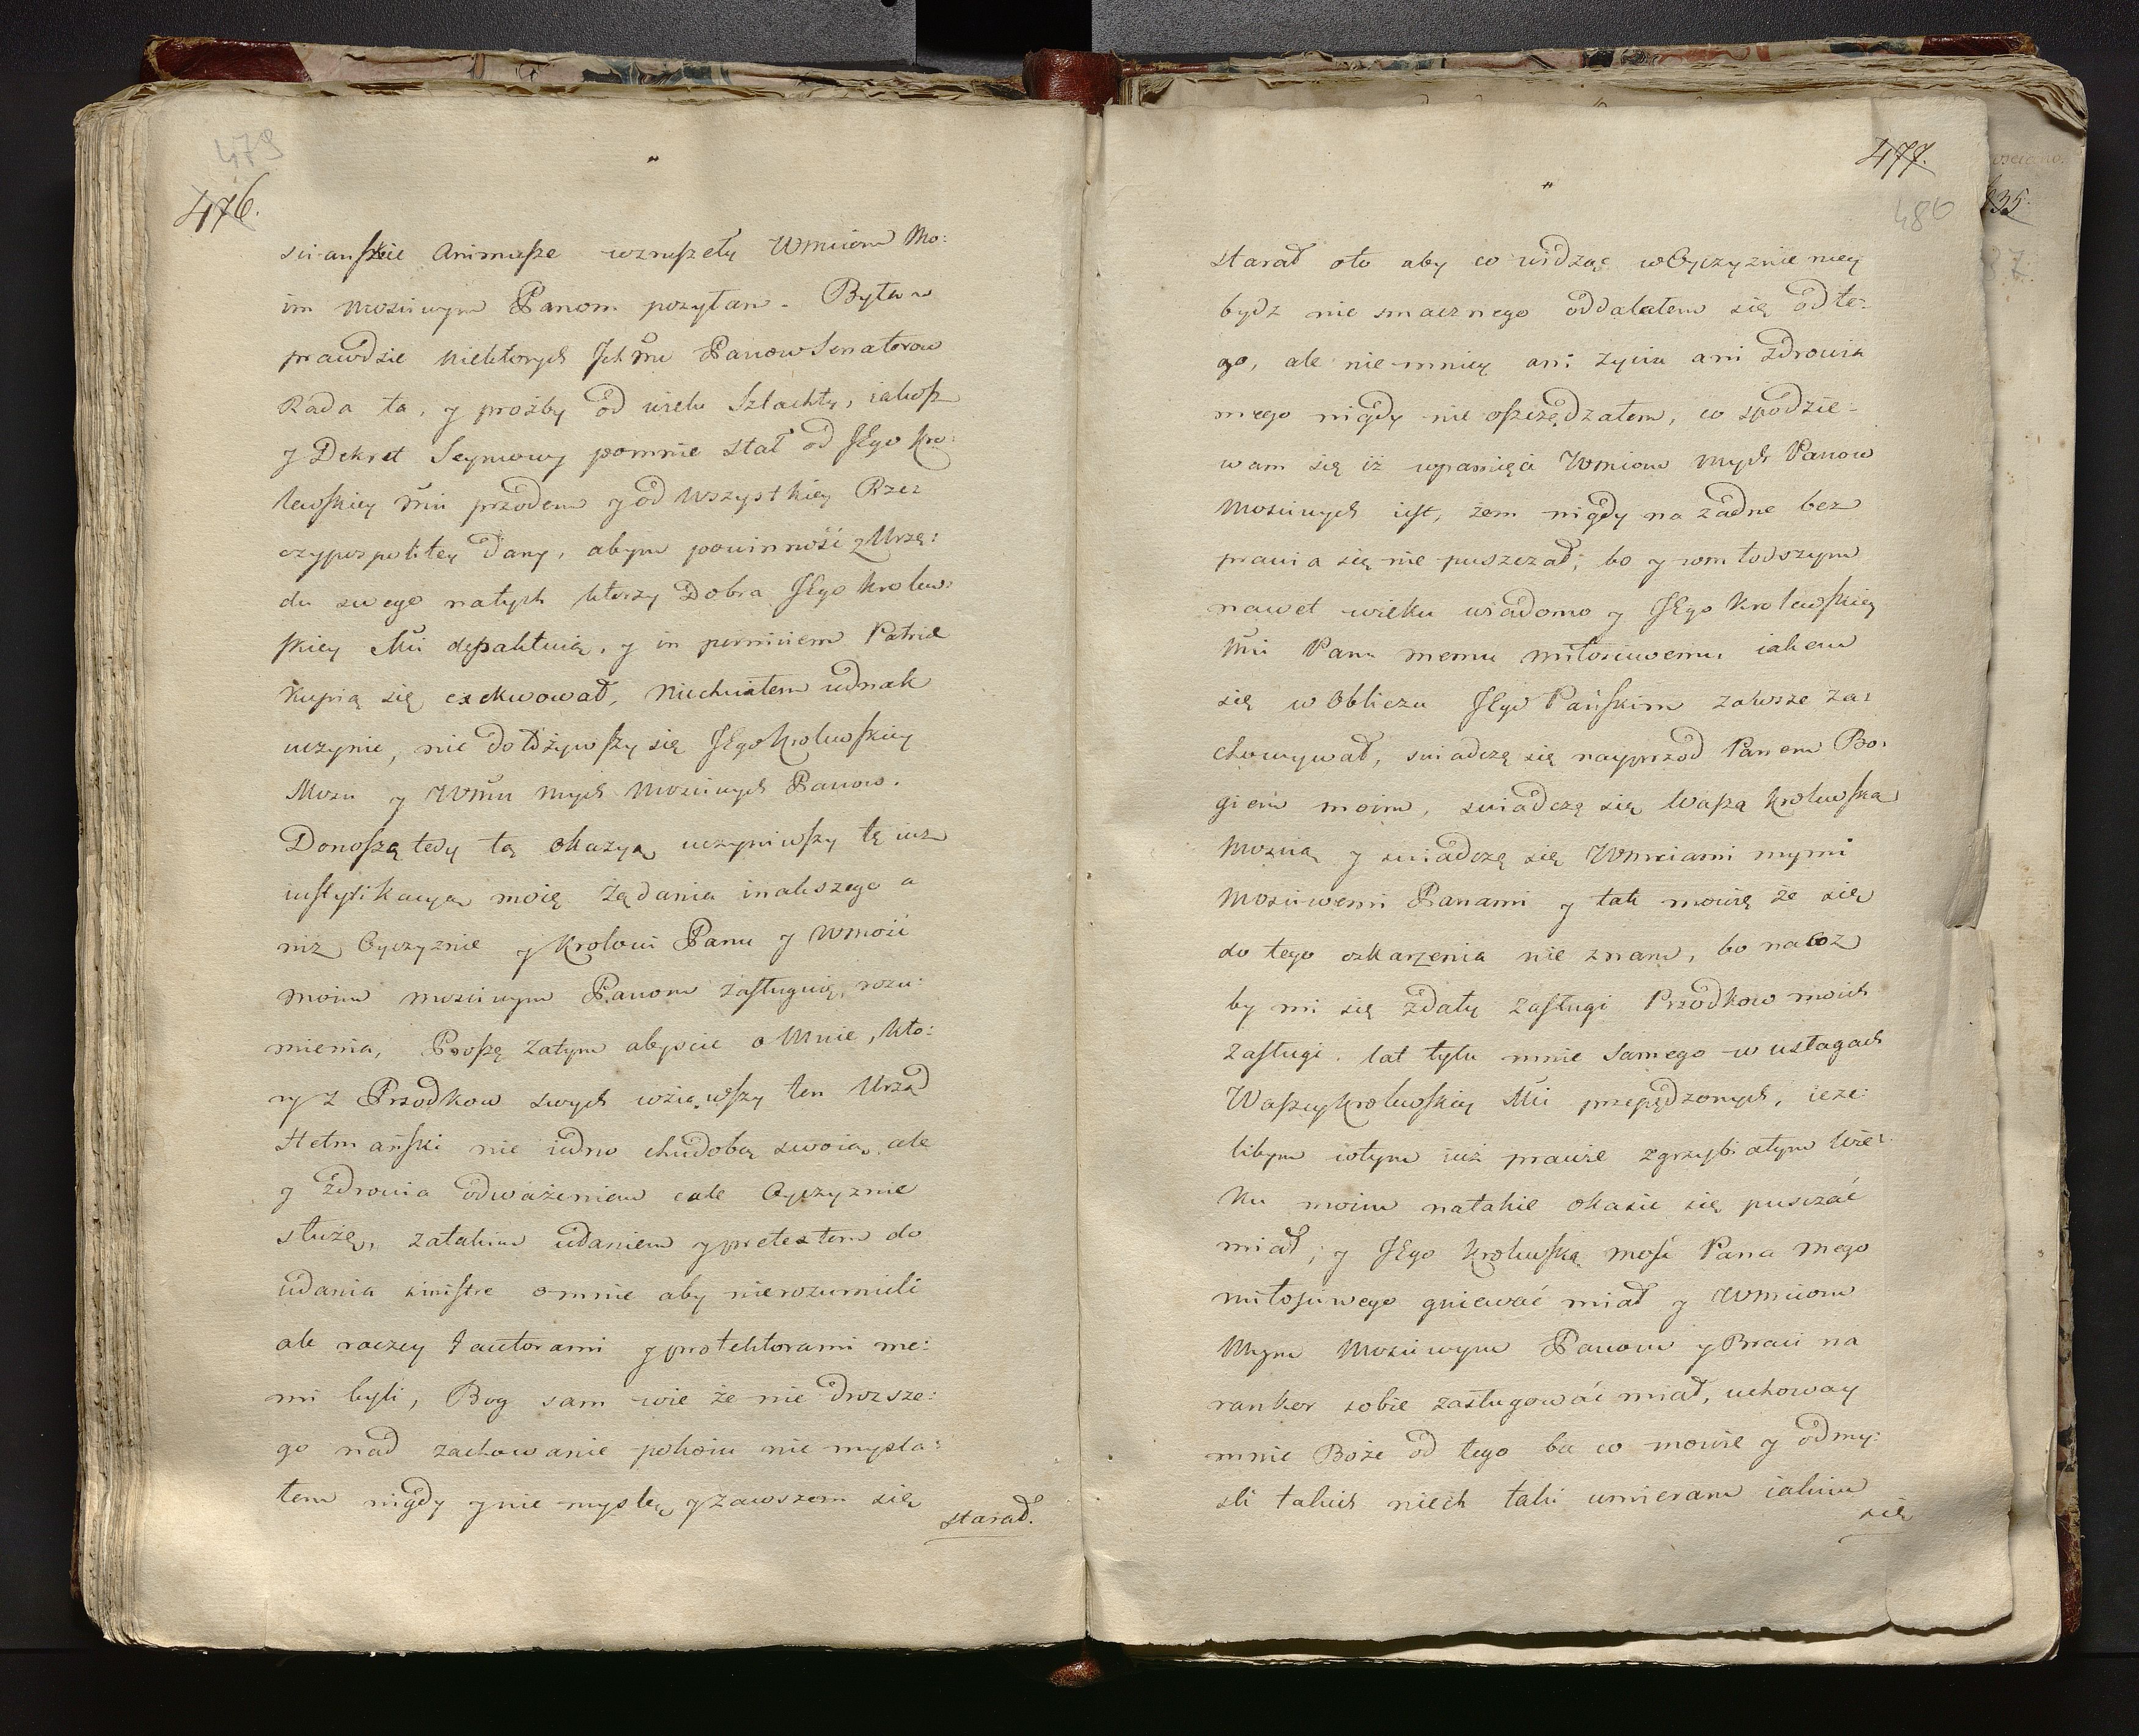 479
476.
scianskie Animusze wzruszeły Wmciom Mo:
im Mosciwym Panom poczytam. Była w
prawdzie niektorych Ich Mċ Panow Senatorow
Rada ta, y prozby od wielu Szlachty, iakosz
y Dekret Seymowy pomnie stał od JEgo kro:
lewskiey Mci przodem y od Wszystkiey Rze:
czypospolitey dany, abym powinność z Urzę:
du swego natych ktorzy Dobra JEgo krolew:
skiey Mci depaktuią, y in perniciem Patriæ
kupią się exekwował, niechciałem iednak
uczynic, nie dołożywszy się JEgo krolewskiey
Mosci y Wmċiu mych Mosciwych Panow.
Donoszą tedy tą okazyą uczyniwszy tę iuz
iustyfikacyą moię żądania inakszego a
niz Oyczyznie y krolowi Panu y Wmości
moim mosciwym Panom zasługuię, rozu:
mienia, Proszę zatym abyscie o Mnie, kto:
ry z Przodkow swych wziąwszy ten Urząd
Hetmański nie iedno chudobą swoią, ale
y zdrowia odważeniem cale Oyczyznie
służę, zatakim udaniem y pretextem do
udania sinistre o mnie aby nierozumieli
ale raczey fautorami y protektorami me:
mi byli, Bog sam wie że nie drozsze:
go nad zachowanie pokoiu nie mysla:
łem nigdy y nie myslę, y zawszem się
starał.
477.
480
starał oto aby co widząc w Oyczyznie mey
bydz nie smacznego oddalałem się od te:
go, ale niemniey ani zycia ani zdrowia
mego nigdy nie oszczędzałem, co spodzie:
wam się iż wpamięci Wmciow mych Panow
Mosciwych iest, żem nigdy na żadne bez
prawia się nie puszczał; bo y wmłodszym
nawet wieku wiadomo y JEgo krolewskiey
Mci Panu memu miłosciwemu iakem
się w Obliczu JEgo Pańskim zawsze za:
chowywał, swiadczę się nayprzod Panem Bo:
giem moim, swiadczę się Waszą krolewską
Moscią y swiadczę się Wmciami mymi
Mosciwemi Panami y tak mowię że się
do tego oskarzenia nie znam, bo nacoz
by mi się zdały zasługi Przodkow moich
zasługi lat tylu mnie samego w usługach
Waszey krolewskiey Mci przepędzonych, ieże:
libym wtym iuż prawie zgrzybiałym Wie:
ku moim natakie okasie się puszczać
miał; y JEgo krolewską Mość Pana mego
miłosciwego gniewać miał y Wmciom
Mym Mosciwym Panom y Braci na
rankor sobie zasługować miał, uchoway
mnie Boże od tego bu co mowie y odmy:
sli takich niech taki umieram iakim
się
35.
87.